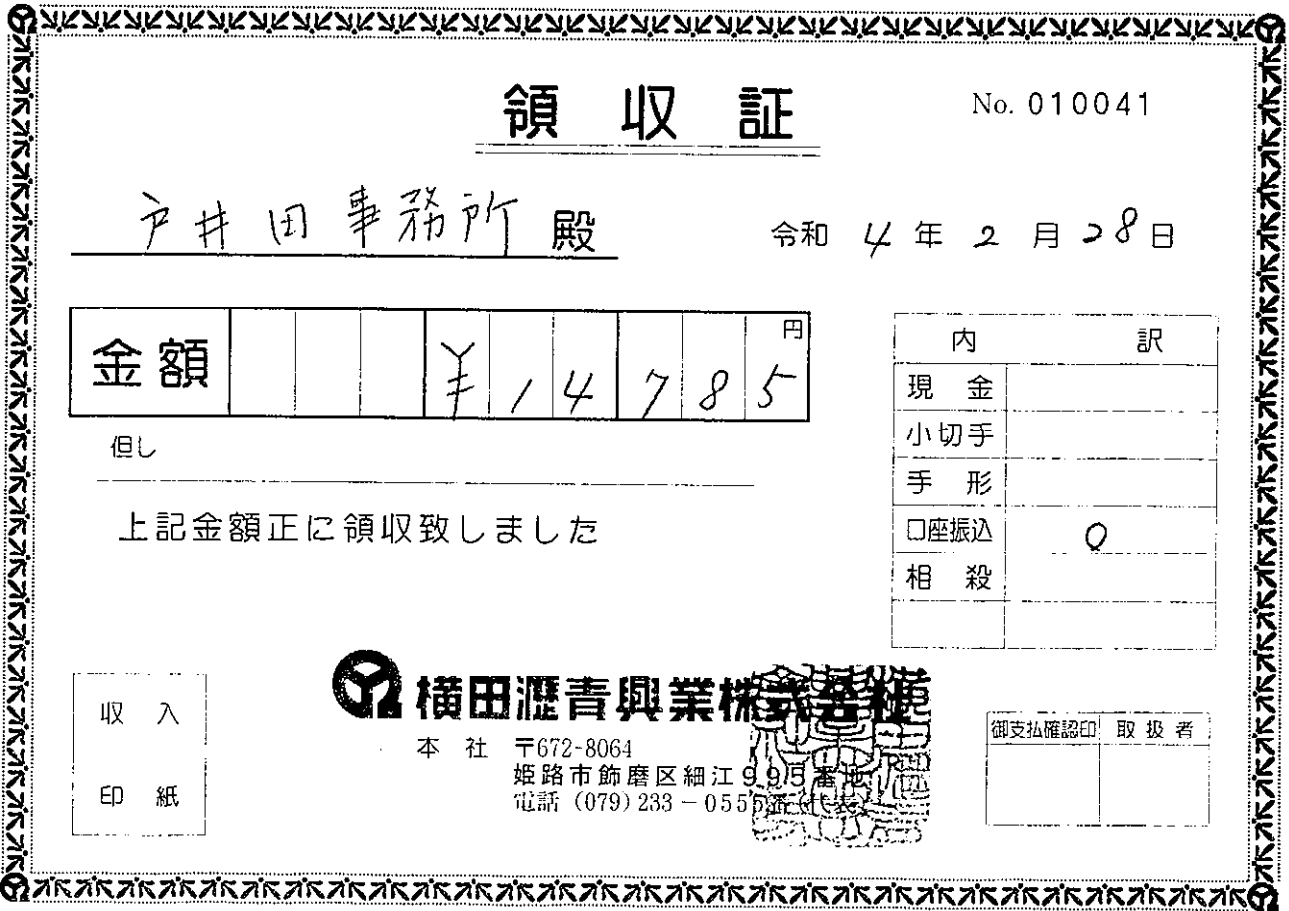 領収証
No. 010041
戸井田事務所 殿
令和 4 年 2 月 28 日
金額 ¥14785 円
但し
上記金額正に領収致しました
内訳
現金
小切手
手形
口座振込 〇
相殺
収入
印紙
横田瀝青興業株式会社
本社 〒672-8064
姫路市飾磨区細江995番地
電話 (079) 233-0555番(代表)
御支払確認印 取扱者